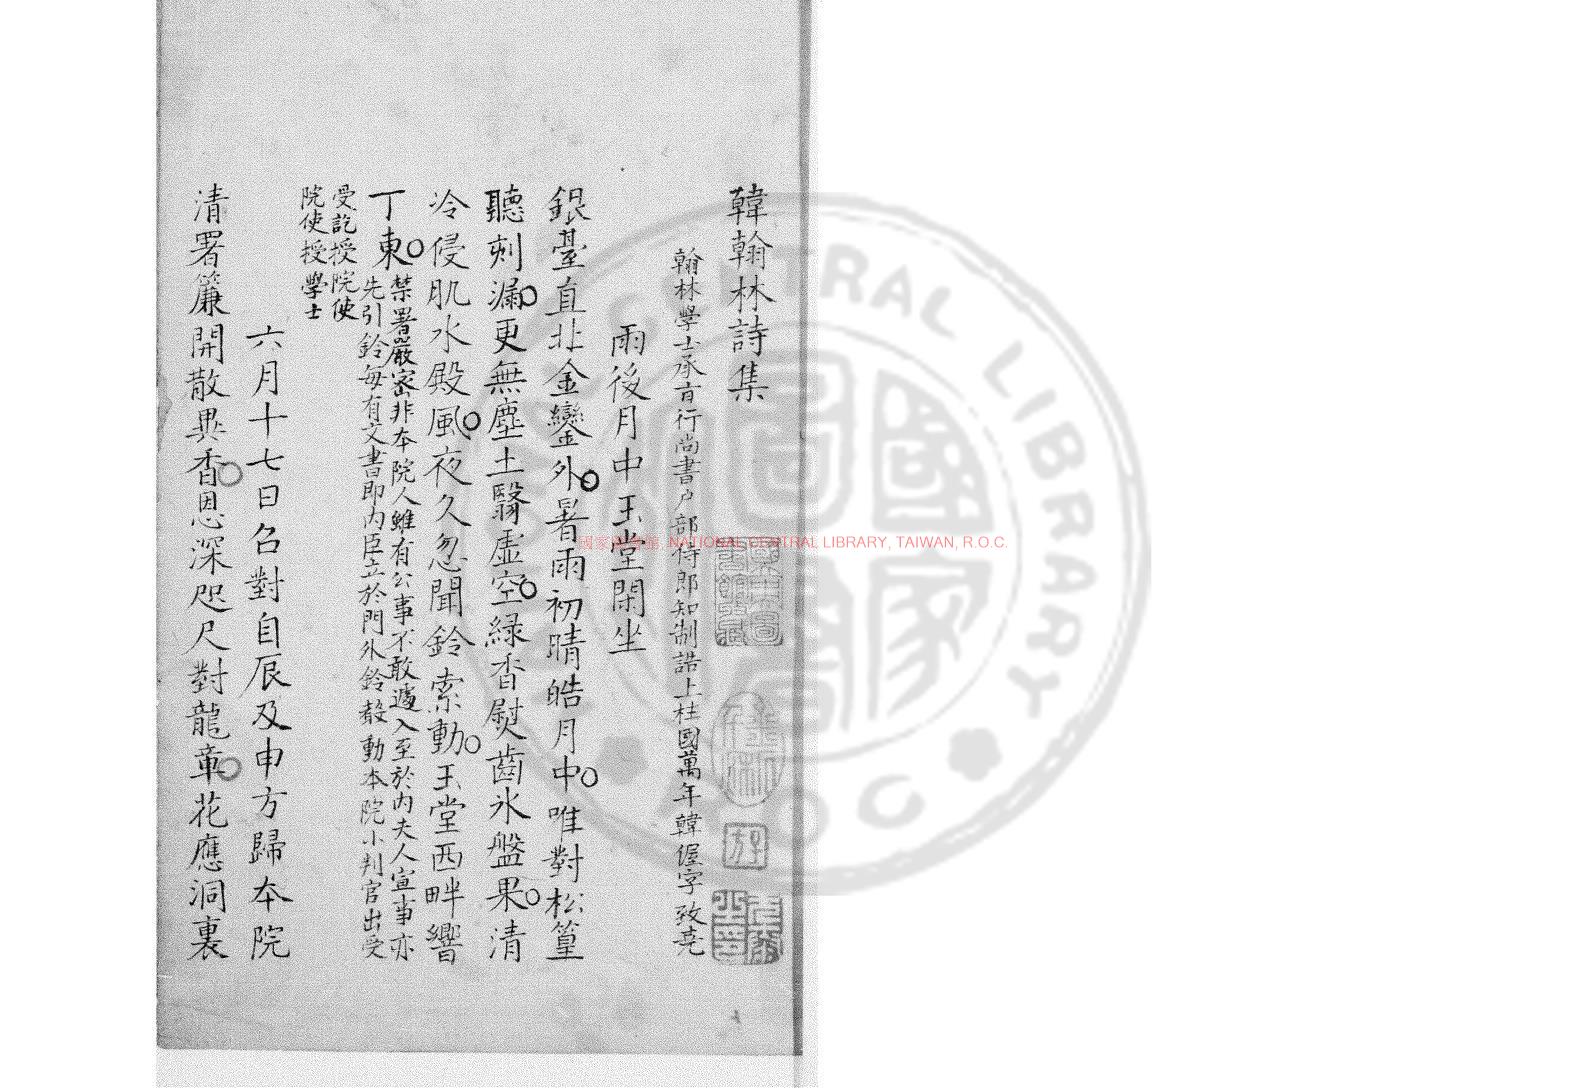 韓翰林詩集
翰林學士承旨行尚書户部侍郎知制誥上柱國萬年韓偓字致堯
雨後月中玉堂閑坐
銀臺直北金鑾外暑雨初晴皓月中唯對松篁
聽刻漏更無塵土翳虛空綠香熨齒氷盤果清
冷侵肌水殿風夜久忽聞鈴索動玉堂西畔響
丁東
禁署嚴密非本院人雖有公事不敢遽入至於內夫人宣事亦
先引鈴每有文書即內臣立於門外鈴聲動本院小判官出受
受訖授院使
院使授學士
六月十七日召對自辰及申方歸本院
清署簾開散異香恩深咫尺對龍章花應洞裏
國家圖書館 NATIONAL CENTRAL LIBRARY, TAIWAN, R.O.C.
CENTRAL LIBRARY